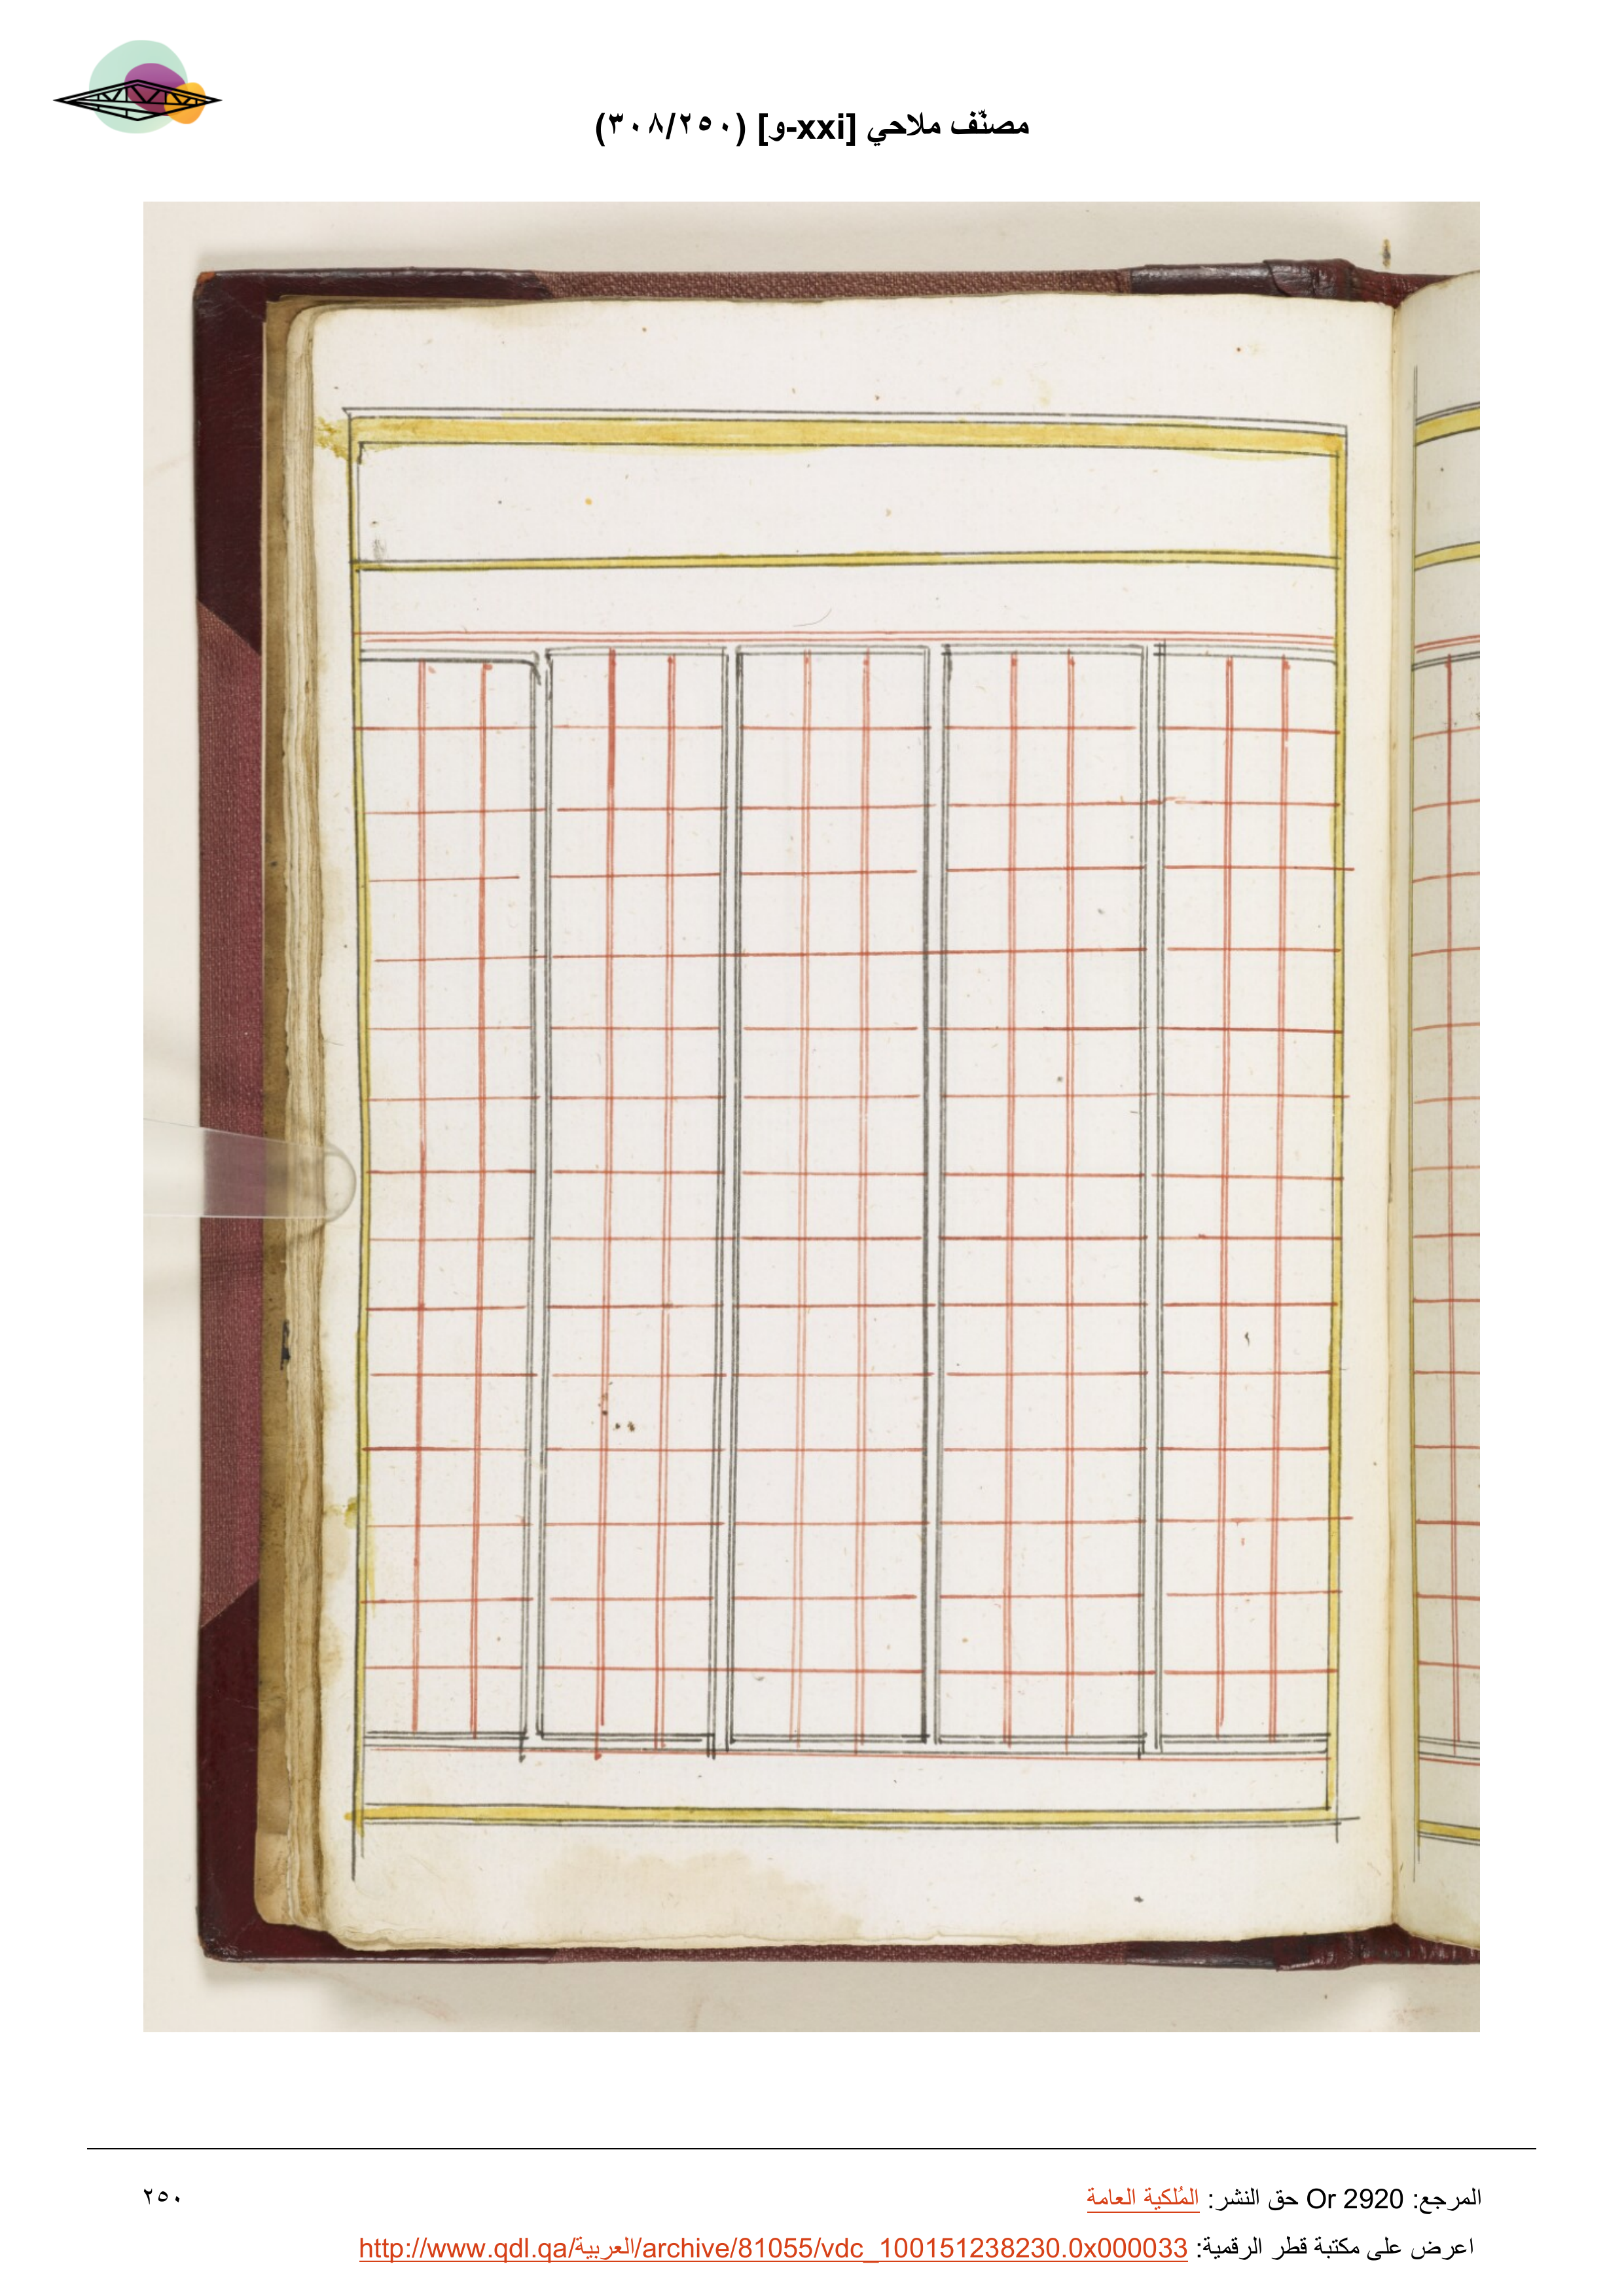 مصنّف ملاحي [xxi-و] (٢٥٠/٣٠٨)
المرجع: Or 2920 حق النشر: المُلكية العامة
٢٥٠
اعرض على مكتبة قطر الرقمية: http://www.qdl.qa/العربية/archive/81055/vdc_100151238230.0x000033